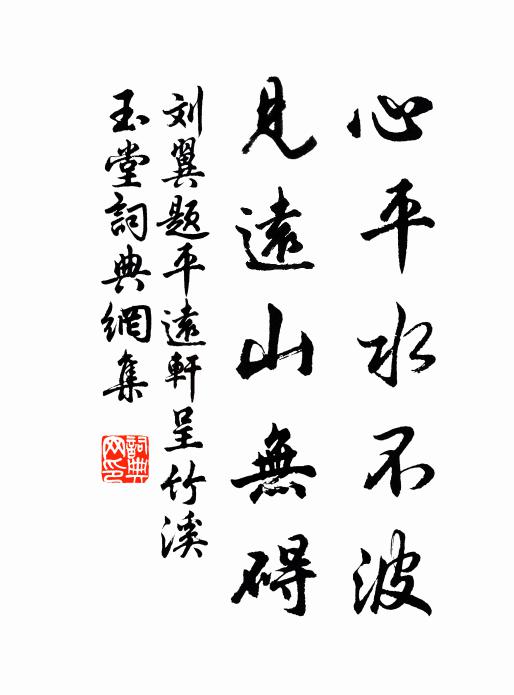 心平水不波
見遠山無碍
刘翼题平遠軒呈竹溪
玉堂詞典網集
詞典网印